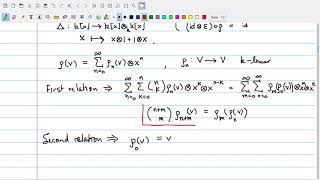 Δ : k[x] → k[x]⊗k[x] (id⊗ε)ρ =
x ↦ x⊗1+1⊗x
ρ(v) = ∑_{n=0}^{∞} ρ_n(v)⊗x^n ρ_n : V → V k-linear
First relation ⇒ ∑_{n=0}^{∞} ∑_{k=0}^{n} (n k) ρ_n(v)⊗x^{n-k}⊗x^k = ∑_{n=0}^{∞} ∑_{m=0}^{∞} ρ_m(ρ_n(v))⊗x^m⊗x^n
(n+m m) ρ_{n+m}(v) = ρ_m(ρ_n(v))
Second relation ⇒ ρ_0(v) = v